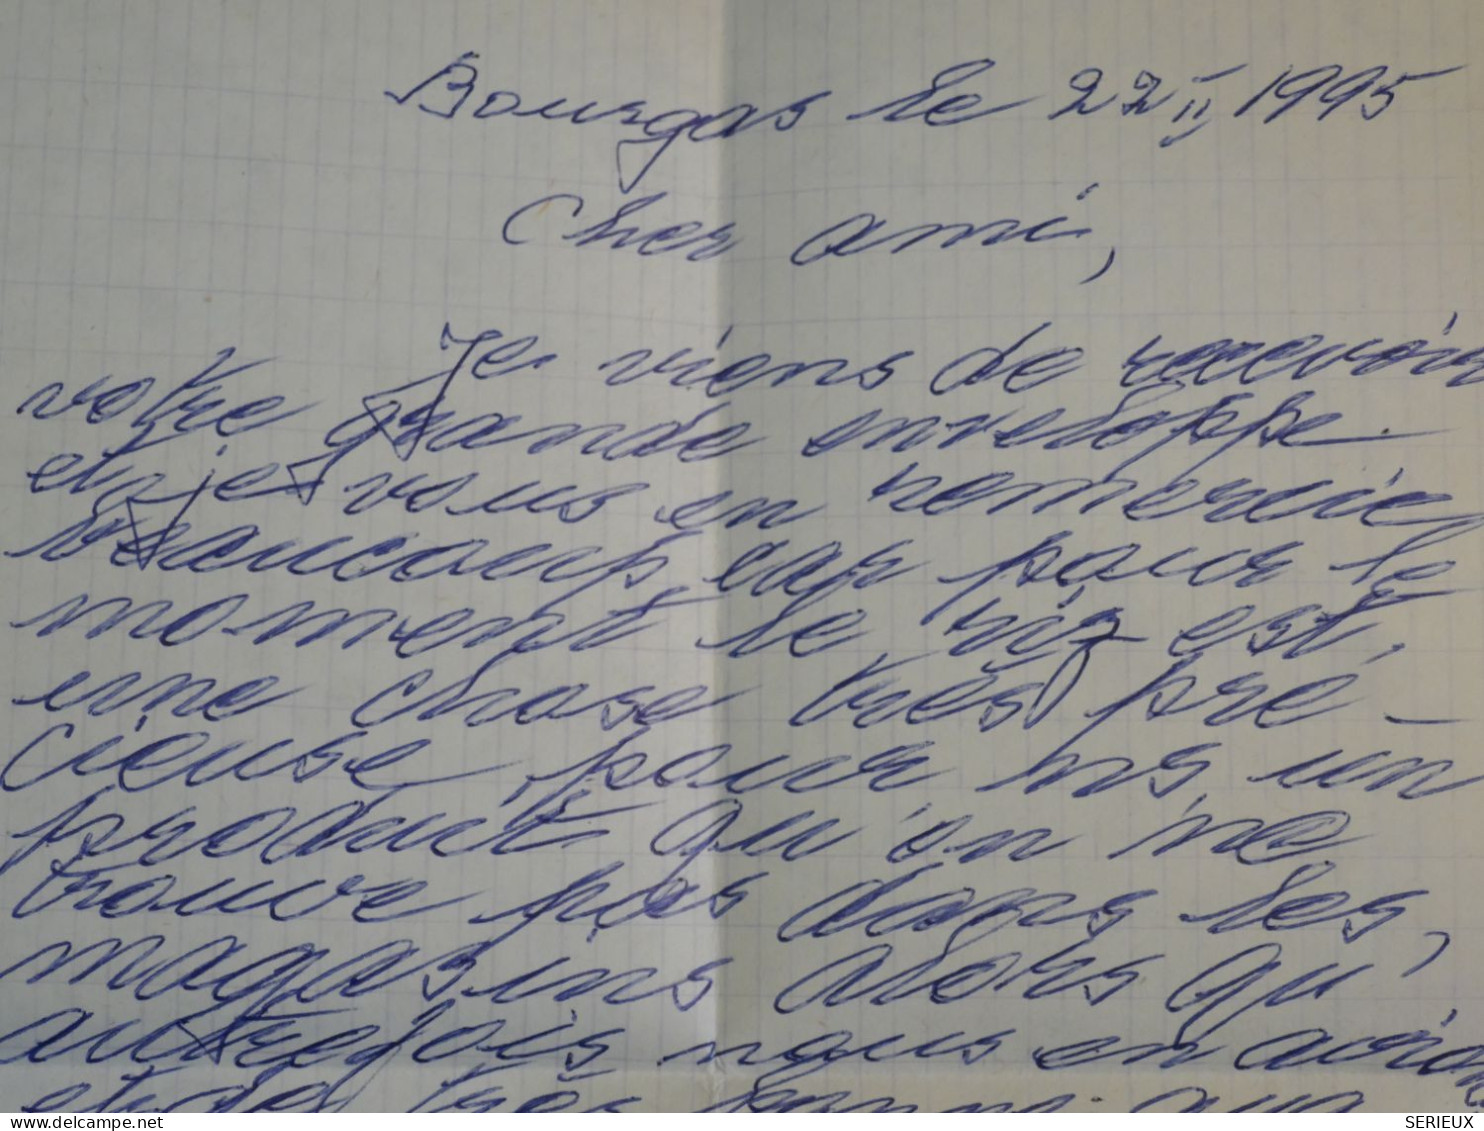 Bourgas le 22 II 1995
Cher ami,
Je viens de recevoir
votre grande enveloppe
et je vous en remercie
beaucoup, car pour le
moment le riz est
une chose très pré-
cieuse pour ns, un
produit qu'on ne
trouve pas dans les
magasins alors qu'
autrefois nous en avions
et de très bonne qua
www.delcampe.net
SERIEUX